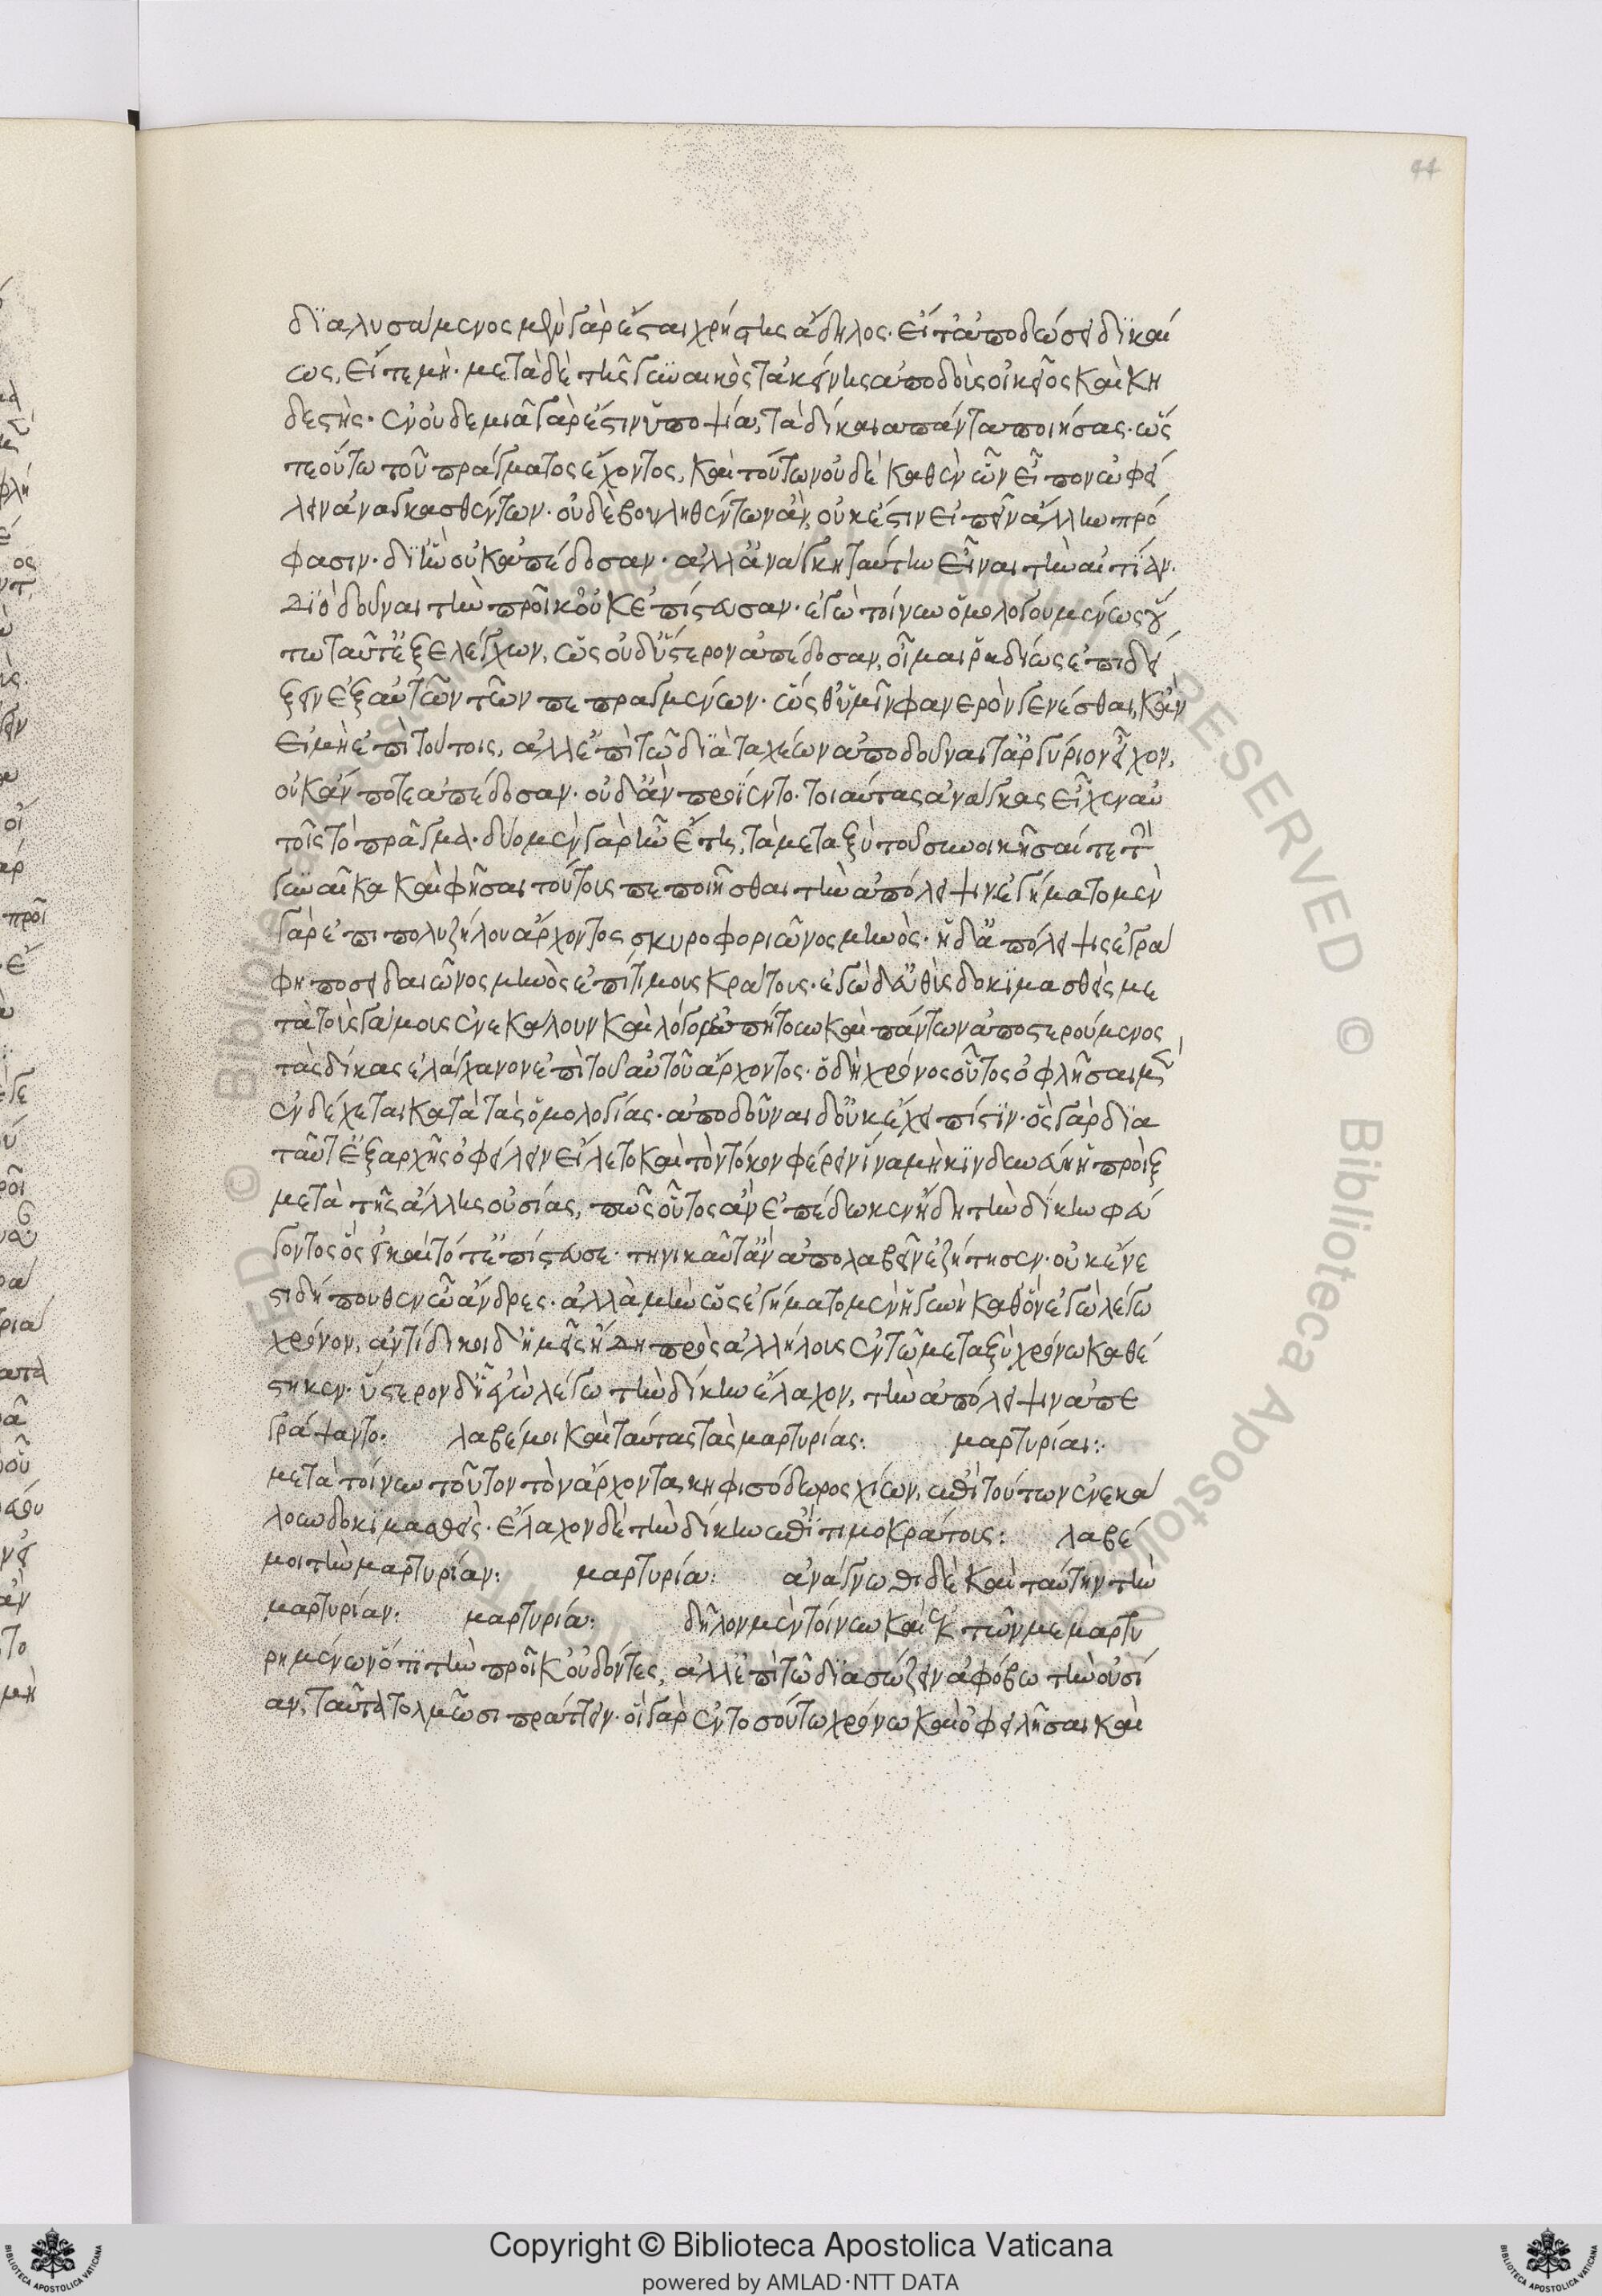 44
διαλυσάμενος μὲν γὰρ ἔσται χρήστης ἄδηλος· εἴτ' ἀποδώσει δικαί
ως, εἴτε μή· μετὰ δὲ τῆς γυναικὸς τἀκείνης ἀποδοὺς οἰκεῖος καὶ κη
δεστής· ἐν οὐδεμιᾷ γάρ ἐστιν ὑποψίᾳ, τὰ δίκαια πάντα ποιήσας· ὥς
τε οὕτω τοῦ πράγματος ἔχοντος, καὶ τούτων οὐδὲ καθ' ἓν ὧν εἶπον ὀφεί
λειν ἀναγκασθέντων· οὐδὲ βουληθέντων ἂν, οὐκ ἔστιν εἰπεῖν ἄλλην πρό
φασιν· δι' ἣν οὐκ ἀπέδοσαν· ἀλλ' ἀνάγκη ταύτην εἶναι τὴν αἰτίαν·
δι' ὃ δοῦναι τὴν προῖκ' οὐκ ἐπίστευσαν· ἐγὼ τοίνυν ὁμολογουμένως οὕ
τω ταῦτ' ἐξελέγχων, ὡς οὐδ' ὕστερον ἀπέδοσαν, οἶμαι ῥᾳδίως ἐπιδεί
ξειν ἐξ αὐτῶν τῶν πεπραγμένων· ὥσθ' ὑμῖν φανερὸν γενέσθαι, κἂν
εἰ μὴ ἐπὶ τούτοις, ἀλλ' ἐπὶ τῷ διὰ ταχέων ἀποδοῦναι τἀργύριον εἶχον,
οὐκ ἄν ποτε ἀπέδοσαν· οὐδ' ἂν προΐεντο· τοιαύτας ἀνάγκας εἶχεν αὐ
τοῖς τὸ πρᾶγμα· δύο μὲν γὰρ ἦν ἔτη, τὰ μεταξὺ τοῦ συνοικῆσαί τε τὴν
γυναῖκα καὶ φῆσαι τούτους πεποιῆσθαι τὴν ἀπόλειψιν· ἐγήματο μὲν
γὰρ ἐπὶ πολυζήλου ἄρχοντος σκυροφοριῶνος μηνὸς· ἡ δ' ἀπόλειψις ἐγρά
φη ποσειδαιῶνος μηνὸς ἐπὶ τιμουκράτους· ἐγὼ δ' εὐθὺς δοκιμασθεὶς με
τὰ τοὺς γάμους ἐνεκάλουν καὶ λόγον ἀπῄτουν καὶ πάντων ἀποστερούμενος
τὰς δίκας ἐλάγχανον ἐπὶ τοῦ αὐτοῦ ἄρχοντος· ὁ δὴ χρόνος οὗτος ὀφλῆσαι μὲν
ἐνδέχεται κατὰ τὰς ὁμολογίας· ἀποδοῦναι δ' οὐκ ἔχει πίστιν· ὃς γὰρ διὰ
ταῦτ' ἐξ ἀρχῆς ὀφείλειν εἵλετο καὶ τὸν τόκον φέρειν ἵνα μὴ κινδυνεύῃ ἡ προὶξ
μετὰ τῆς ἄλλης οὐσίας, πῶς οὗτος ἂν ἐπέδωκεν ἤδη τὴν δίκην φεύ
γοντος ὃς εἰ καὶ τότ' ἐπίστευσε· τηνικαῦτ' ἂν ἀπολαβεῖν ἐζήτησεν· οὐκ ἔνε
στι δήπουθεν ὦ ἄνδρες· ἀλλὰ μὴν ὡς ἐγήματο μὲν ἡ γυνὴ καθ' ὃν ἐγὼ λέγω
χρόνον, ἀντίδικοι δ' ἡμεῖς ἤδη πρὸς ἀλλήλους ἐν τῷ μεταξὺ χρόνῳ καθέ
στηκεν· ὕστερον δ' ἢ ἐγὼ λέγω τὴν δίκην ἔλαχον, τὴν ἀπόλειψιν ἀπε
γράψαντο· λαβέ μοι καὶ ταύτας τὰς μαρτυρίας: μαρτυρίαι:
μετὰ τοίνυν τοῦτον τὸν ἄρχοντα κηφισόδωρος χίων, ἐπὶ τούτων ἐνεκά
λουν δοκιμασθείς· ἔλαχον δὲ τὴν δίκην ἐπὶ τιμοκράτους: λαβέ
μοι τὴν μαρτυρίαν: μαρτυρία: ἀνάγνωθι δὲ καὶ ταύτην τὴν
μαρτυρίαν: μαρτυρία: δῆλον μὲν τοίνυν καὶ ἐκ τῶν μεμαρτυ
ρημένων ὅτι τὴν προῖκ' οὐ δόντες, ἀλλ' ἐπὶ τῷ διασώζειν ἀφόβῳ τὴν οὐσί
αν, ταῦτα τολμῶσι πράττειν· οἳ γὰρ ἐν τοσούτῳ χρόνῳ καὶ ὀφειλῆσαι καὶ
Copyright © Biblioteca Apostolica Vaticana
powered by AMLAD·NTT DATA